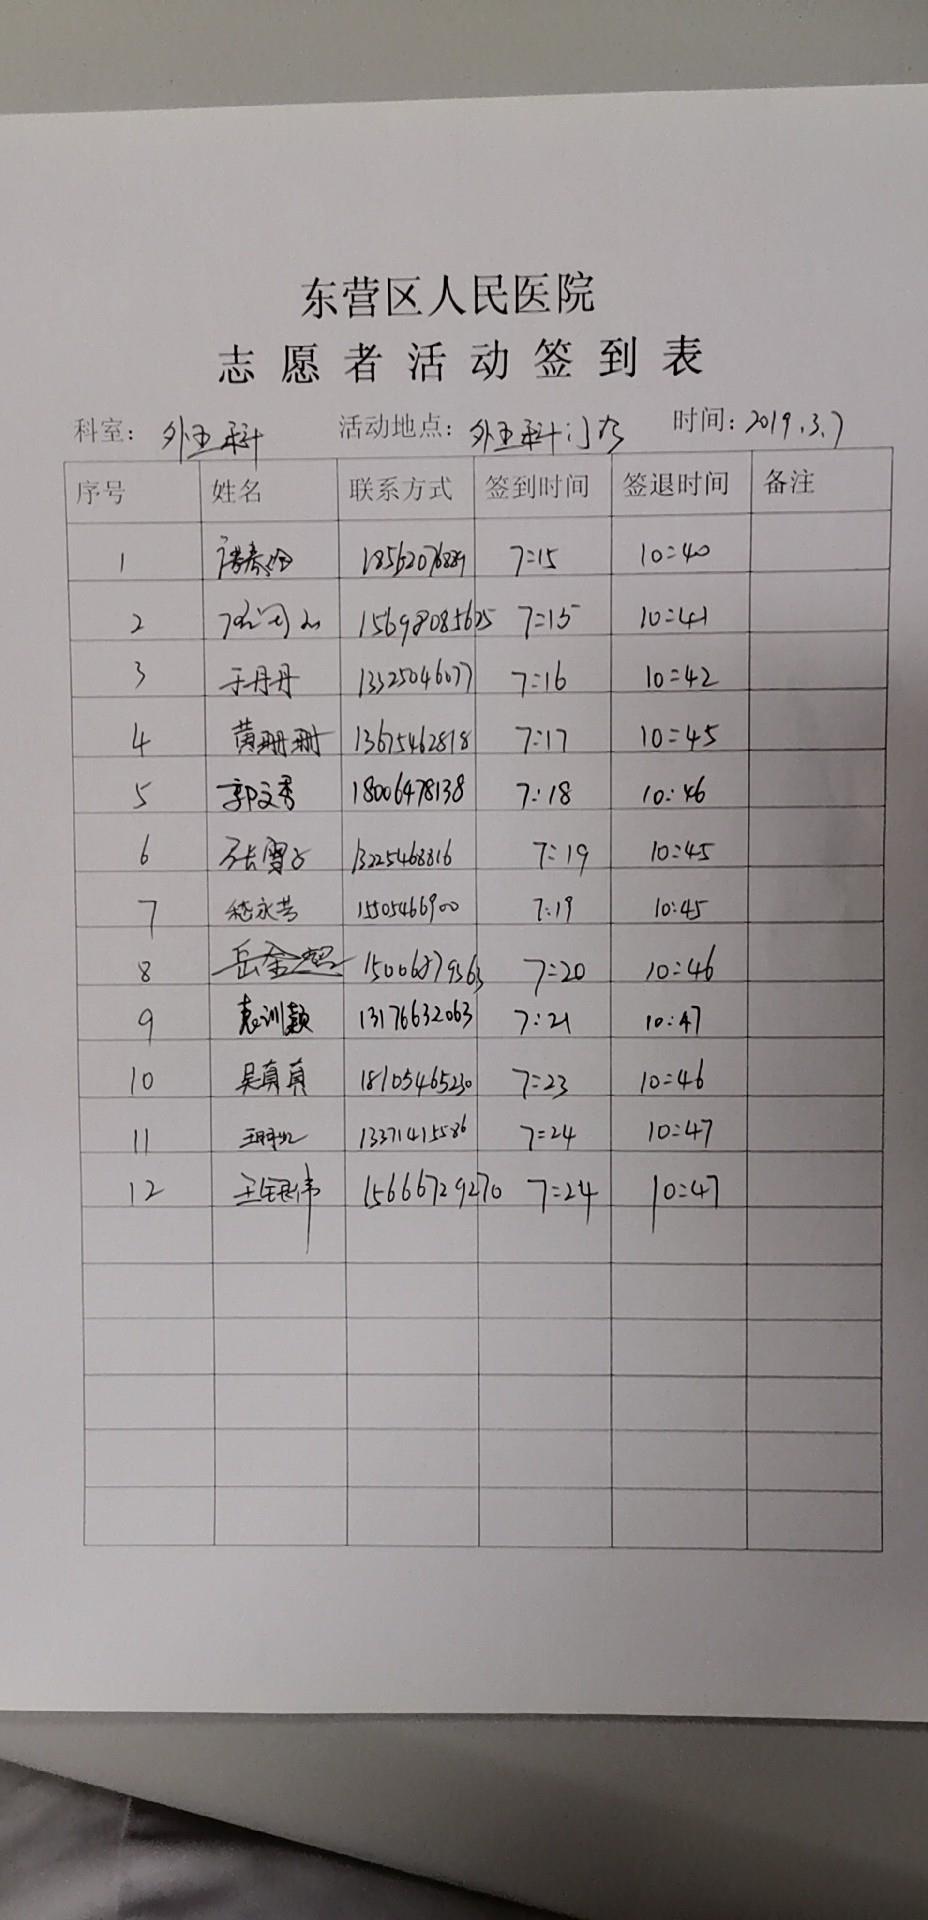 东营区人民医院
志愿者活动签到表
科室: 外五科 活动地点: 外五科门诊 时间: 2019.3.7
序号 姓名 联系方式 签到时间 签退时间 备注
1 7:15 10:40
2 15698085625 7:15 10:41
3 于丹丹 13325046077 7:16 10:42
4 黄珊珊 13675462818 7:17 10:45
5 郭文秀 18006478138 7:18 10:46
6 张雪 13225468816 7:19 10:45
7 永芳 15505466900 7:19 10:45
8 岳金超 15006879363 7:20 10:46
9 袁训颖 13176632063 7:21 10:47
10 吴真真 18105465230 7:23 10:46
11 13371415586 7:24 10:47
12 王银伟 15666729270 7:24 10:47